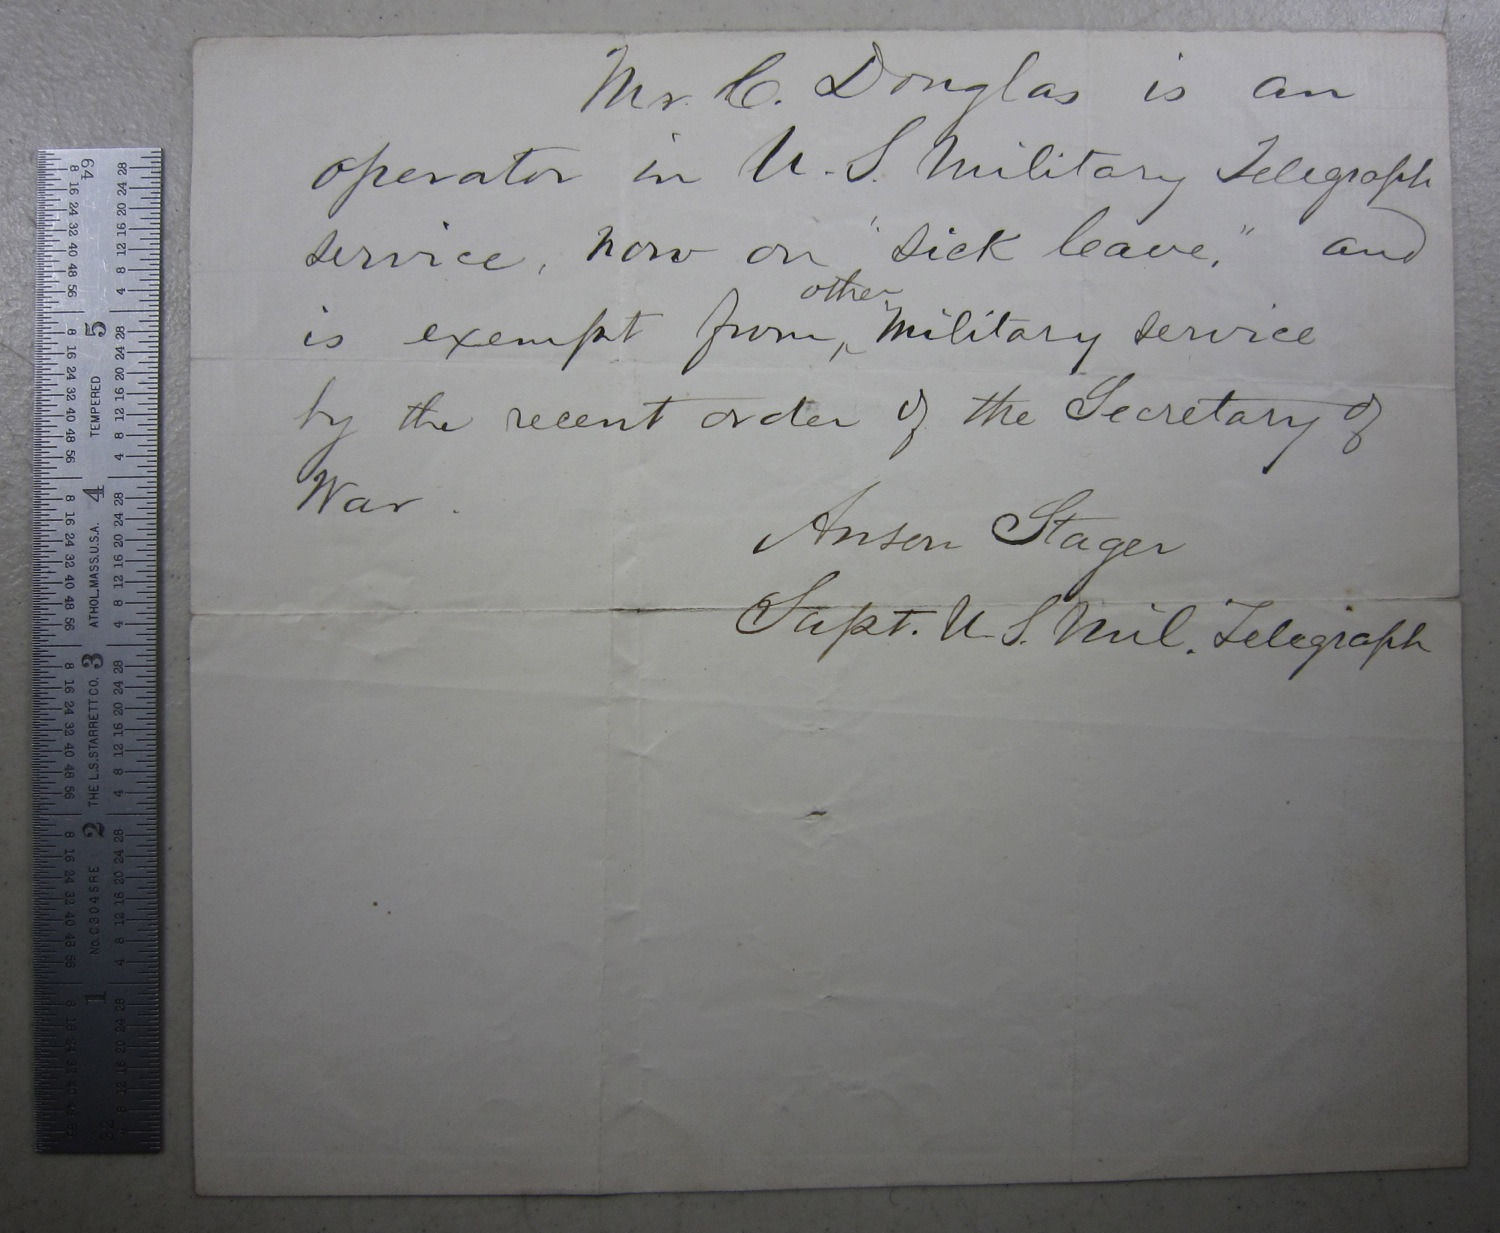 Mr. C. Douglas is an
operator in U.S. Military Telegraph
service, now on "sick leave," and
other
is exempt from, ^ Military service
by the recent order of the Secretary of
War.
Anson Stager
Supt. U.S. Mil. Telegraph
64
8 16 24 32 40 48 56
4 8 12 16 20 24 28
5
TEMPERED
4
ATHOL, MASS. U.S.A.
3
THE L.S. STARRETT CO.
2
No. C304SRE
1
32